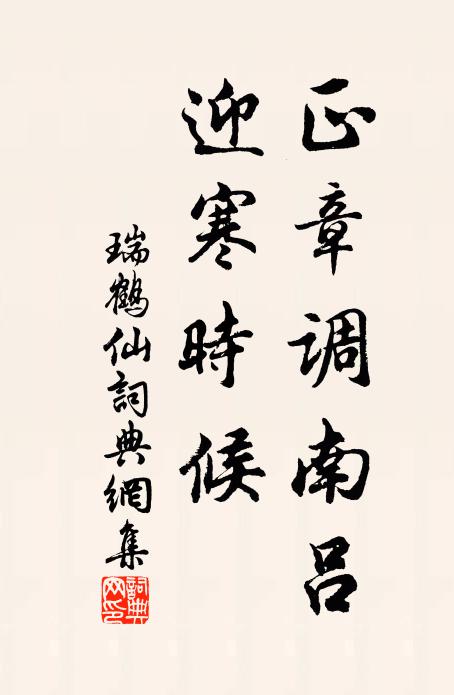 正章調南呂
迎寒時候
瑞鶴仙詞典網集
詞典网印